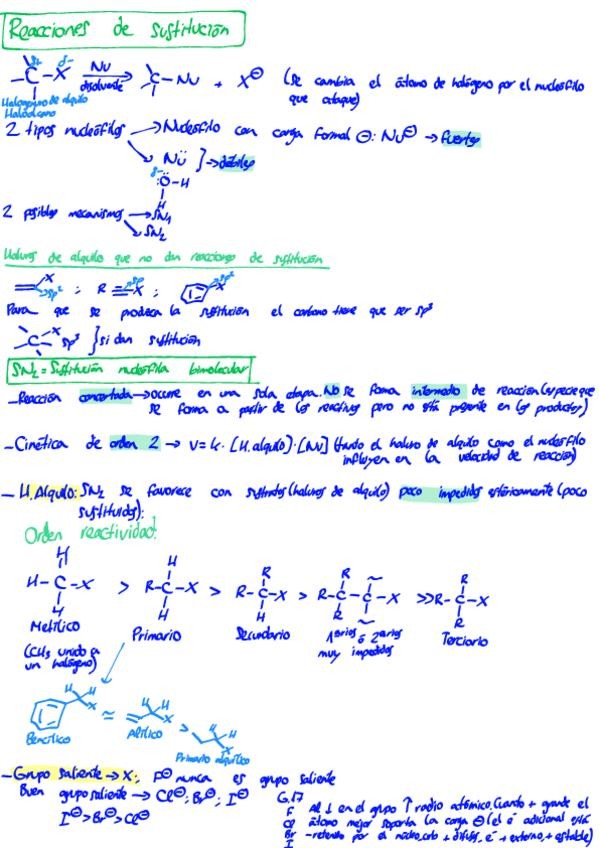 Reacciones de sustitución
δ+ δ-
-C-X Nu disolvente → C-Nu + X⊖ (se cambia el átomo de halógeno por el nucleófilo
que ataque)
Halogenuro de alquilo
Haloalcano
2 tipos nucleófilos → Nucleófilo con carga formal ⊖: Nu⊖ → fuertes
Nü } → débiles
δ- Ö-H
H
2 posibles mecanismos → SN1
SN2
Haluros de alquilo que no dan reacciones de sustitución
X sp² ; R≡X sp ; X sp²
Para que se produzca la sustitución el carbono tiene que ser sp³
C-X sp³ } si dan sustitución
SN2 = Sustitución nucleófila bimolecular
-Reacción concertada → ocurre en una sola etapa. No se forma intermedio de reacción (especie que
se forma a partir de los reactivos pero no está presente en los productos)
-Cinética de orden 2 → v=k·[H.alquilo]·[Nu] (tanto el haluro de alquilo como el nucleófilo
influyen en la velocidad de reacción)
-H.Alquilo: SN2 se favorece con sustratos (haluros de alquilo) poco impedidos estéricamente (poco
sustituidos):
Orden reactividad:
H H R R R
H-C-X > R-C-X > R-C-X > R-C-C-X >> R-C-X
H H H R R
Metílico Primario Secundario 1arios ó 2arios Terciario
muy impedidos
(CH3 unido a
un halógeno)
H H X ≈ H H X > H H X
Bencílico Alílico Primario alquílico
-Grupo saliente → X: F⊖ nunca es grupo saliente
Buen grupo saliente → Cl⊖; Br⊖; I⊖
I⊖>Br⊖>Cl⊖
G.17
F Al ↓ en el grupo ↑ radio atómico, cuanto + grande el
Cl átomo mejor soporta la carga ⊖ (el é adicional está
Br -retenido por el núcleo, orb + difuso, é + externo, + estable)
I